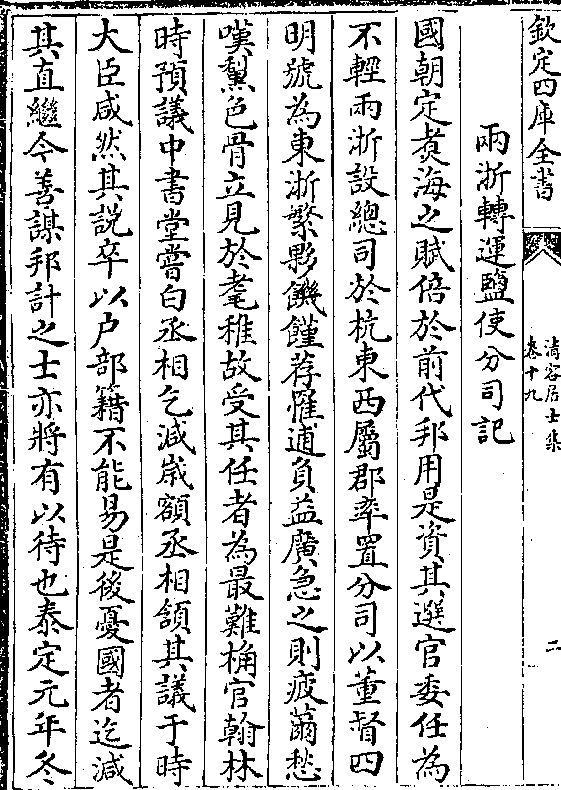 欽定四庫全書
清容居士集
卷十九
二
兩浙轉運鹽使分司記
國朝定煑海之賦倍於前代邦用是資其選官委任為
不輕兩浙設總司於杭東西屬郡率置分司以董督四
明號為東浙繁夥饑饉荐罹逋負益廣急之則疲薾愁
嘆黧色骨立見於耄稚故受其任者為最難桷官翰林
時預議中書堂嘗白丞相乞減嵗額丞相頷其議于時
大臣咸然其説卒以户部籍不能易是後憂國者迄減
其直繼今善謀邦計之士亦將有以待也泰定元年冬